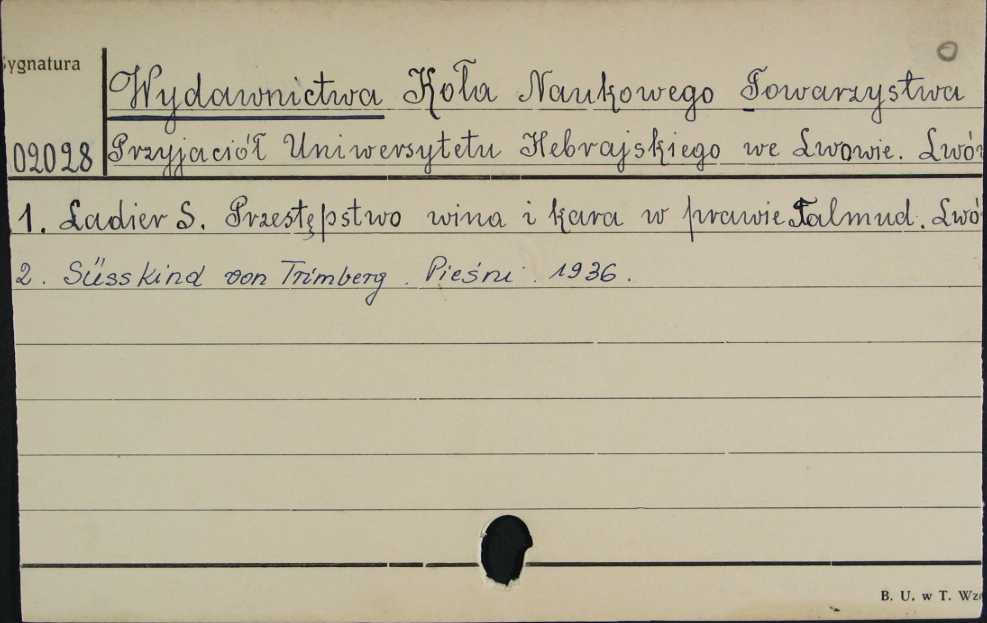 Sygnatura
Wydawnictwa Koła Naukowego Towarzystwa
02028 Przyjaciół Uniwersytetu Hebrajskiego we Lwowie. Lwów
1. Ladier S. Przestępstwo wina i kara w prawie Talmud. Lwó
2. Süsskind von Trimberg. Pieśni. 1936.
B. U. w T. Wz